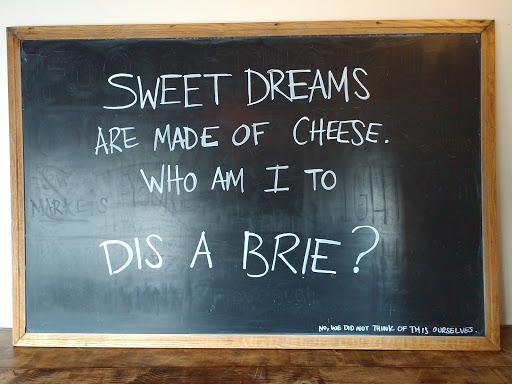 SWEET DREAMS
ARE MADE OF CHEESE.
WHO AM I TO
DIS A BRIE?
NO, WE DID NOT THINK OF THIS OURSELVES.